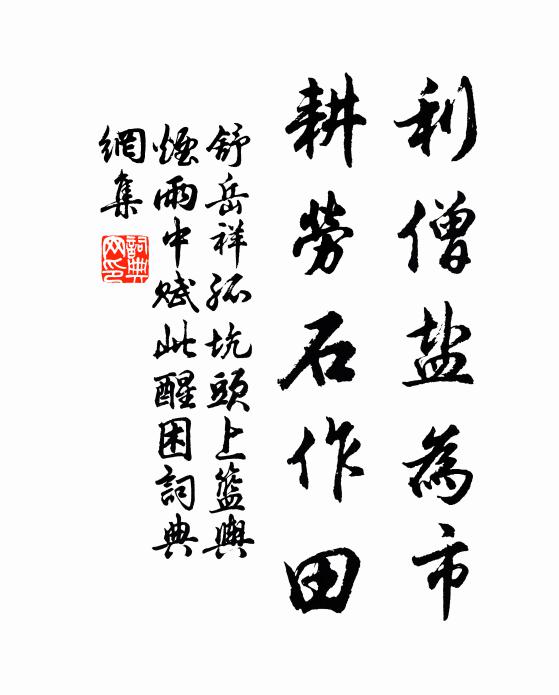 利僧盐為市
耕勞石作田
舒岳祥孤坑頭上籃輿
煙雨中赋此醒困詞典
網集
詞典網印